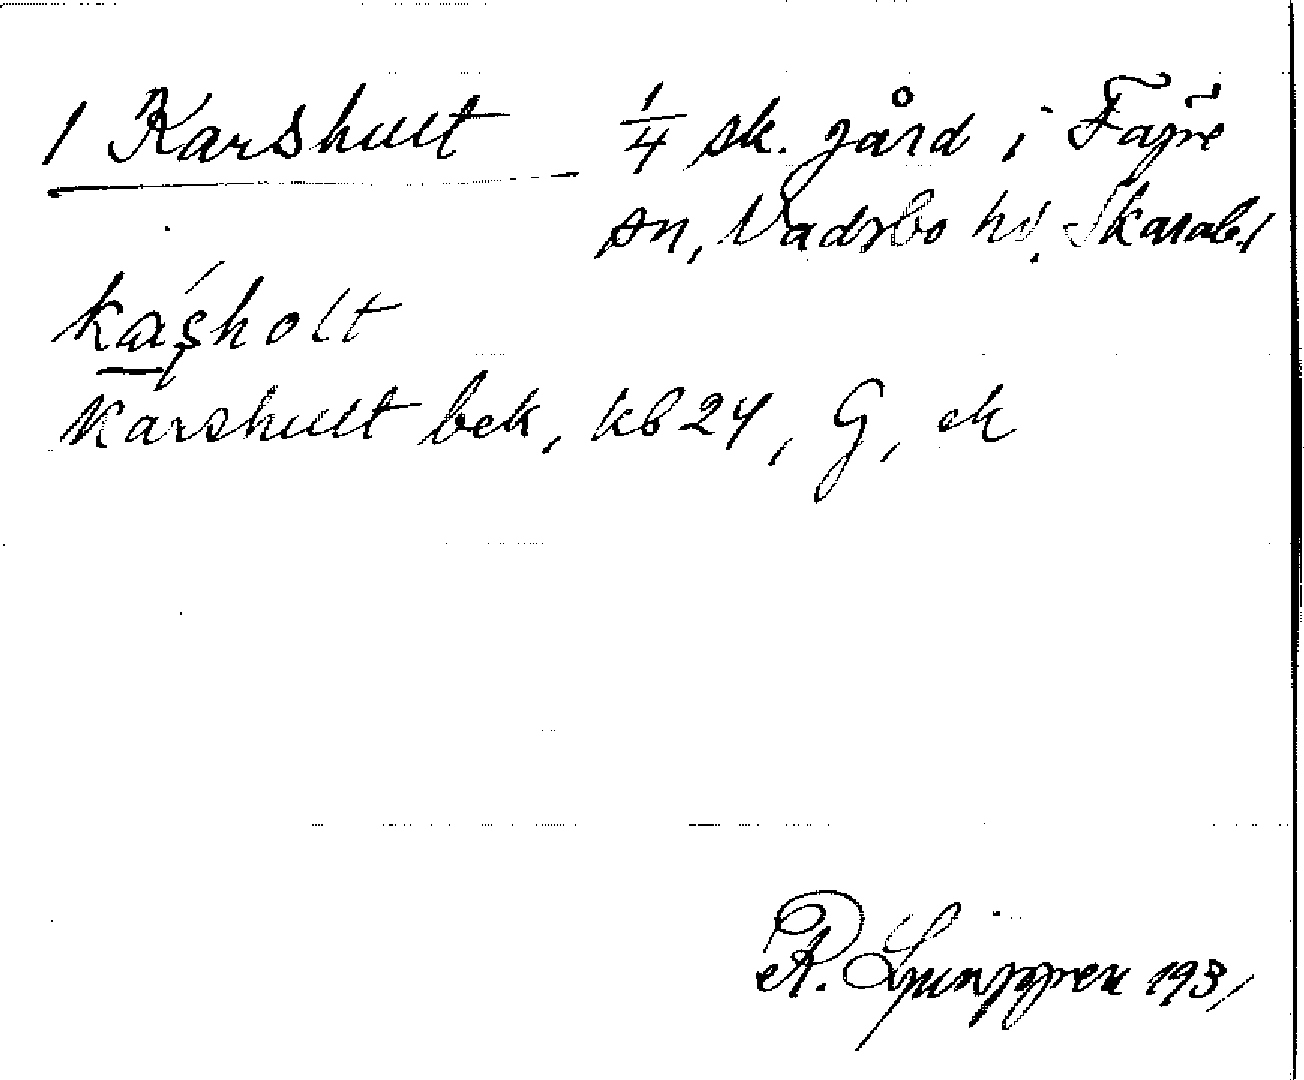 1 Karshult 1/4 sk. gård i Fägre
sn, Vadsbo hd. Skarab.l
káșholt
Karshult bek, kb 24, G, ek
R. Ljunggren 1931